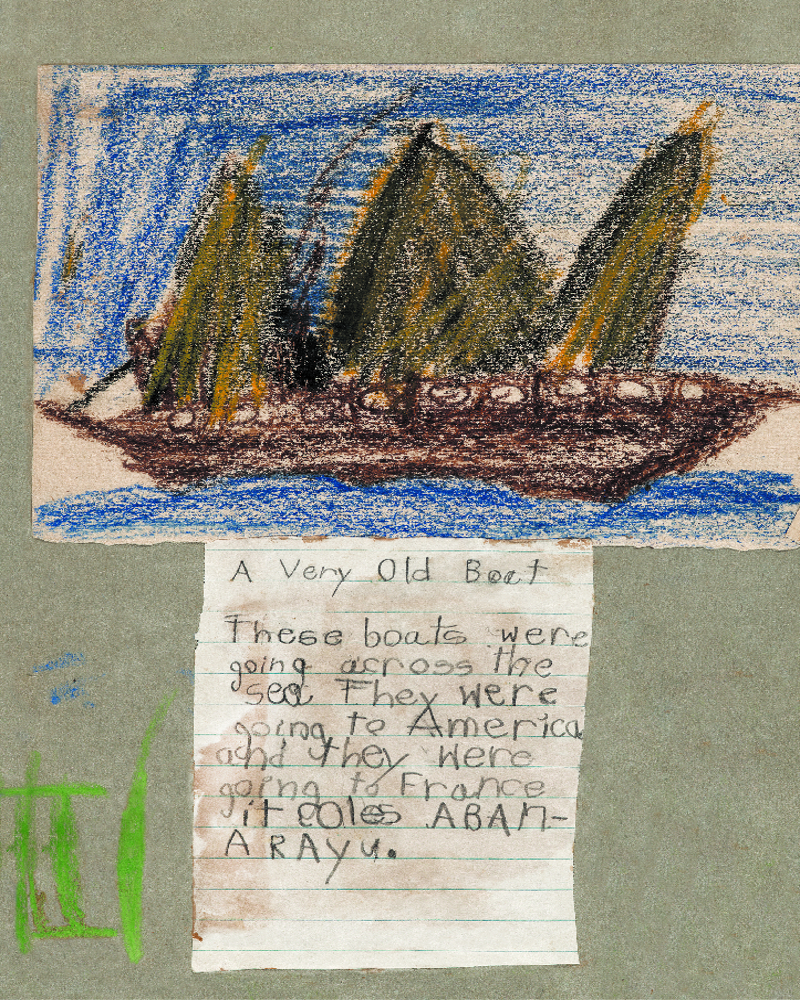 A Very Old Boat
These boats were
going across the
sea They were
going to America
and they were
going to France
it coles ABAN-
ARAYU.